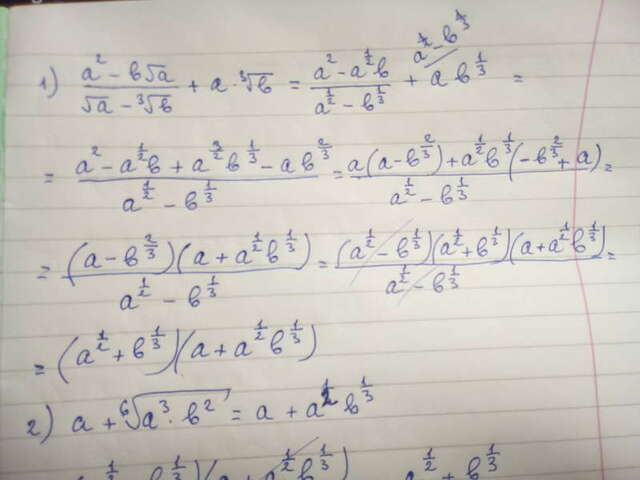 1) (a² - b√a)/(√a - ∛b) + a · ∛b = (a² - a^(1/2)b)/(a^(1/2) - b^(1/3)) + ab^(1/3) / a^(1/2) - b^(1/3) =
= (a² - a^(1/2)b + a^(3/2)b^(1/3) - ab^(2/3))/(a^(1/2) - b^(1/3)) = (a(a - b^(2/3)) + a^(1/2)b^(1/3)(-b^(2/3) + a))/(a^(1/2) - b^(1/3)) =
= ((a - b^(2/3))(a + a^(1/2)b^(1/3)))/(a^(1/2) - b^(1/3)) = ((a^(1/2) - b^(1/3))(a^(1/2) + b^(1/3))(a + a^(1/2)b^(1/3)))/(a^(1/2) - b^(1/3)) =
= (a^(1/2) + b^(1/3))(a + a^(1/2)b^(1/3))
2) a + ⁶√(a³ · b²) = a + a^(1/2)b^(1/3)